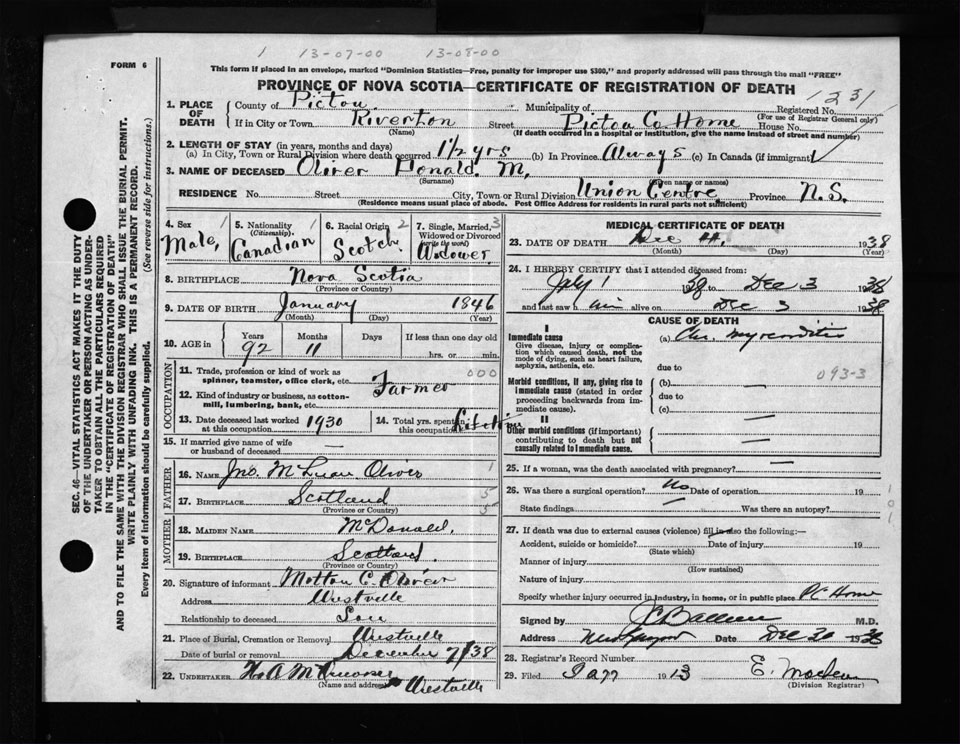 1 13-07-00 13-08-00
FORM 6
This form if placed in an envelope, marked "Dominion Statistics—Free, penalty for improper use $300," and properly addressed will pass through the mail "FREE"
PROVINCE OF NOVA SCOTIA—CERTIFICATE OF REGISTRATION OF DEATH
1. PLACE OF DEATH
County of Pictou Municipality of Registered No. 1231
(For use of Registrar General only)
If in City or Town Riverton Street Pictou Co Home House No.
(Name) (If death occurred in a hospital or institution, give its name instead of street and number)
2. LENGTH OF STAY (in years, months and days)
(a) In City, Town or Rural Division where death occurred 1 1/2 yrs (b) In Province Always (c) In Canada (if immigrant)
3. NAME OF DECEASED Oliver Donald M.
(Surname) (Given name or names)
RESIDENCE No. Street City, Town or Rural Division Union Centre Province N.S.
(Residence means usual place of abode. Post Office Address for residents in rural parts not sufficient)
4. Sex 1 Male
5. Nationality 1 (Citizenship) Canadian
6. Racial Origin 2 Scotch
7. Single, Married, Widowed or Divorced 3 (write the word) Widower
8. BIRTHPLACE Nova Scotia
(Province or Country)
9. DATE OF BIRTH January 1846
(Month) (Day) (Year)
10. AGE in Years Months Days If less than one day old
92 11 hrs. or min.
OCCUPATION
11. Trade, profession or kind of work as spinner, teamster, office clerk, etc. 000
Farmer
12. Kind of industry or business, as cotton-mill, lumbering, bank, etc.
13. Date deceased last worked at this occupation 1930
14. Total yrs. spent in this occupation Lifetime
15. If married give name of wife or husband of deceased —
FATHER
16. NAME Jno. Oliver 1
17. BIRTHPLACE Scotland 5
(Province or Country) 5
MOTHER
18. MAIDEN NAME McDonald
19. BIRTHPLACE Scotland
(Province or Country)
20. Signature of informant C. Oliver
Address Westville
Relationship to deceased Son
21. Place of Burial, Cremation or Removal Westville
Date of burial or removal December 7/38
22. UNDERTAKER
(Name and address) Westville
MEDICAL CERTIFICATE OF DEATH
23. DATE OF DEATH Dec 4, 1938
(Month) (Day) (Year)
24. I HEREBY CERTIFY that I attended deceased from:
July 1 1938 to Dec 3 1938
and last saw him alive on Dec 3 1938
CAUSE OF DEATH
I
Immediate cause
Give disease, injury or complication which caused death, not the mode of dying, such as heart failure, asphyxia, asthenia, etc.
(a) Chr. myocarditis
due to 093-3
Morbid conditions, if any, giving rise to immediate cause (stated in order proceeding backwards from immediate cause).
(b) —
due to
(c) —
II
Other morbid conditions (if important) contributing to death but not causally related to immediate cause.
—
25. If a woman, was the death associated with pregnancy? —
26. Was there a surgical operation? No Date of operation 19
State findings Was there an autopsy?
101
27. If death was due to external causes (violence) fill in also the following:—
Accident, suicide or homicide? Date of injury 19
(State which)
Manner of injury
(How sustained)
Nature of injury
Specify whether injury occurred in industry, in home, or in public place PC Home
Signed by M.D.
Address New Glasgow Date Dec 30 1938
28. Registrar's Record Number
29. Filed 19
(Division Registrar)
SEC. 46—VITAL STATISTICS ACT MAKES IT THE DUTY
OF THE UNDERTAKER OR PERSON ACTING AS UNDER-
TAKER TO OBTAIN ALL THE PARTICULARS REQUIRED
IN THE "CERTIFICATE OF REGISTRATION OF DEATH"
AND TO FILE THE SAME WITH THE DIVISION REGISTRAR WHO SHALL ISSUE THE BURIAL PERMIT.
WRITE PLAINLY WITH UNFADING INK. THIS IS A PERMANENT RECORD.
Every item of information should be carefully supplied. (See reverse side for instructions.)